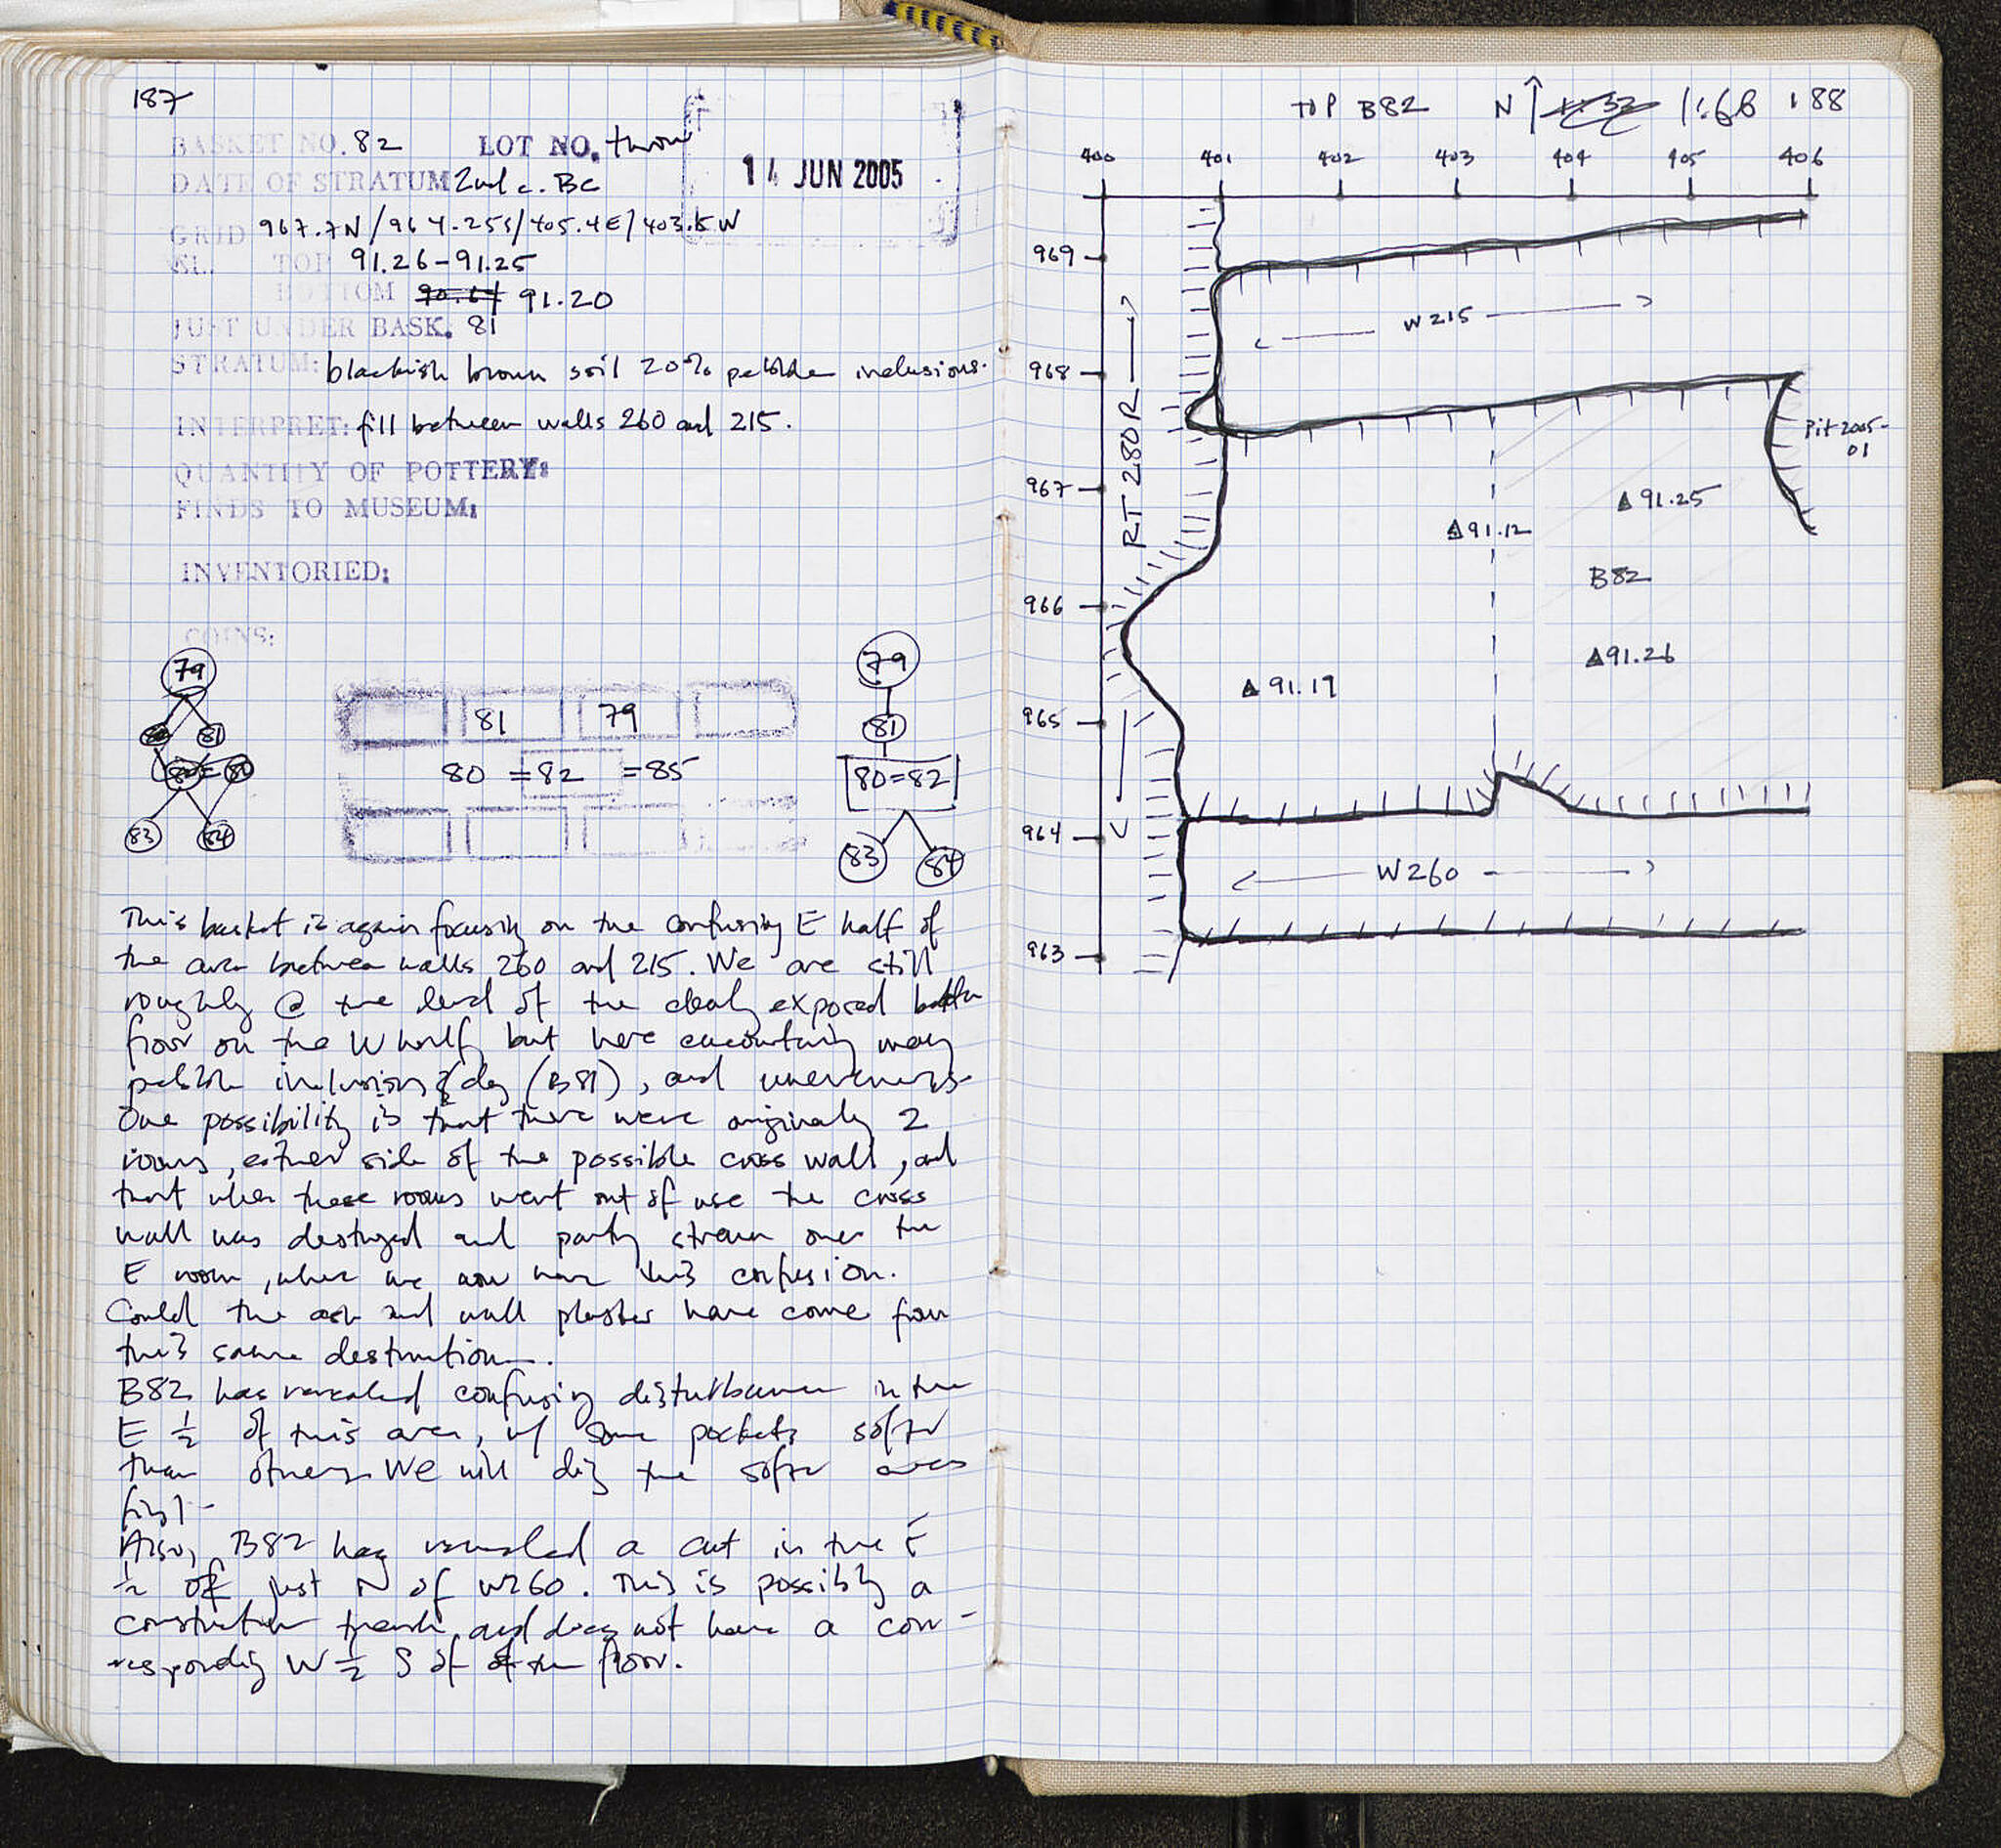 187
BASKET NO. 82 LOT NO. throw
14 JUN 2005
DATE OF STRATUM 2nd c. BC
GRID 967.7N/964.25S/405.4E/403.5W
EL. TOP 91.26-91.25
BOTTOM 91.20
JUST UNDER BASK. 81
STRATUM: blackish brown soil 20% pebble inclusions.
INTERPRET: fill between walls 260 and 215.
QUANTITY OF POTTERY:
FINDS TO MUSEUM:
INVENTORIED:
COINS:
79
81
83 84
81 79
80 =82 =85
79
81
80=82
83 84
This basket is again focusing on the confusing E half of
the area between walls 260 and 215. We are still
roughly @ the level of the clearly exposed
floor on the W half, but here encountering many
pebble inclusions & clay (B81), and unevenness.
One possibility is that there were originally 2
rooms, either side of the possible cross wall, and
that when these rooms went out of use the cross
wall was destroyed and partly strewn over the
E room, where we now have this confusion.
Could the ash and wall plaster have come from
this same destruction.
B82 has revealed confusing disturbance in the
E ½ of this area, w/ some pockets softer
than others. We will dig the softer areas
first.
Also, B82 has revealed a cut in the E
½ of just N of W260. This is possibly a
construction trench, and does not have a corr-
esponding W ½ S of the floor.
TOP B82 N 1:66 188
400 401 402 403 404 405 406
969
W215
968
RT 280R
Pit 2005-
01
967
91.25
91.12
B82
966
91.26
91.19
965
964
W260
963